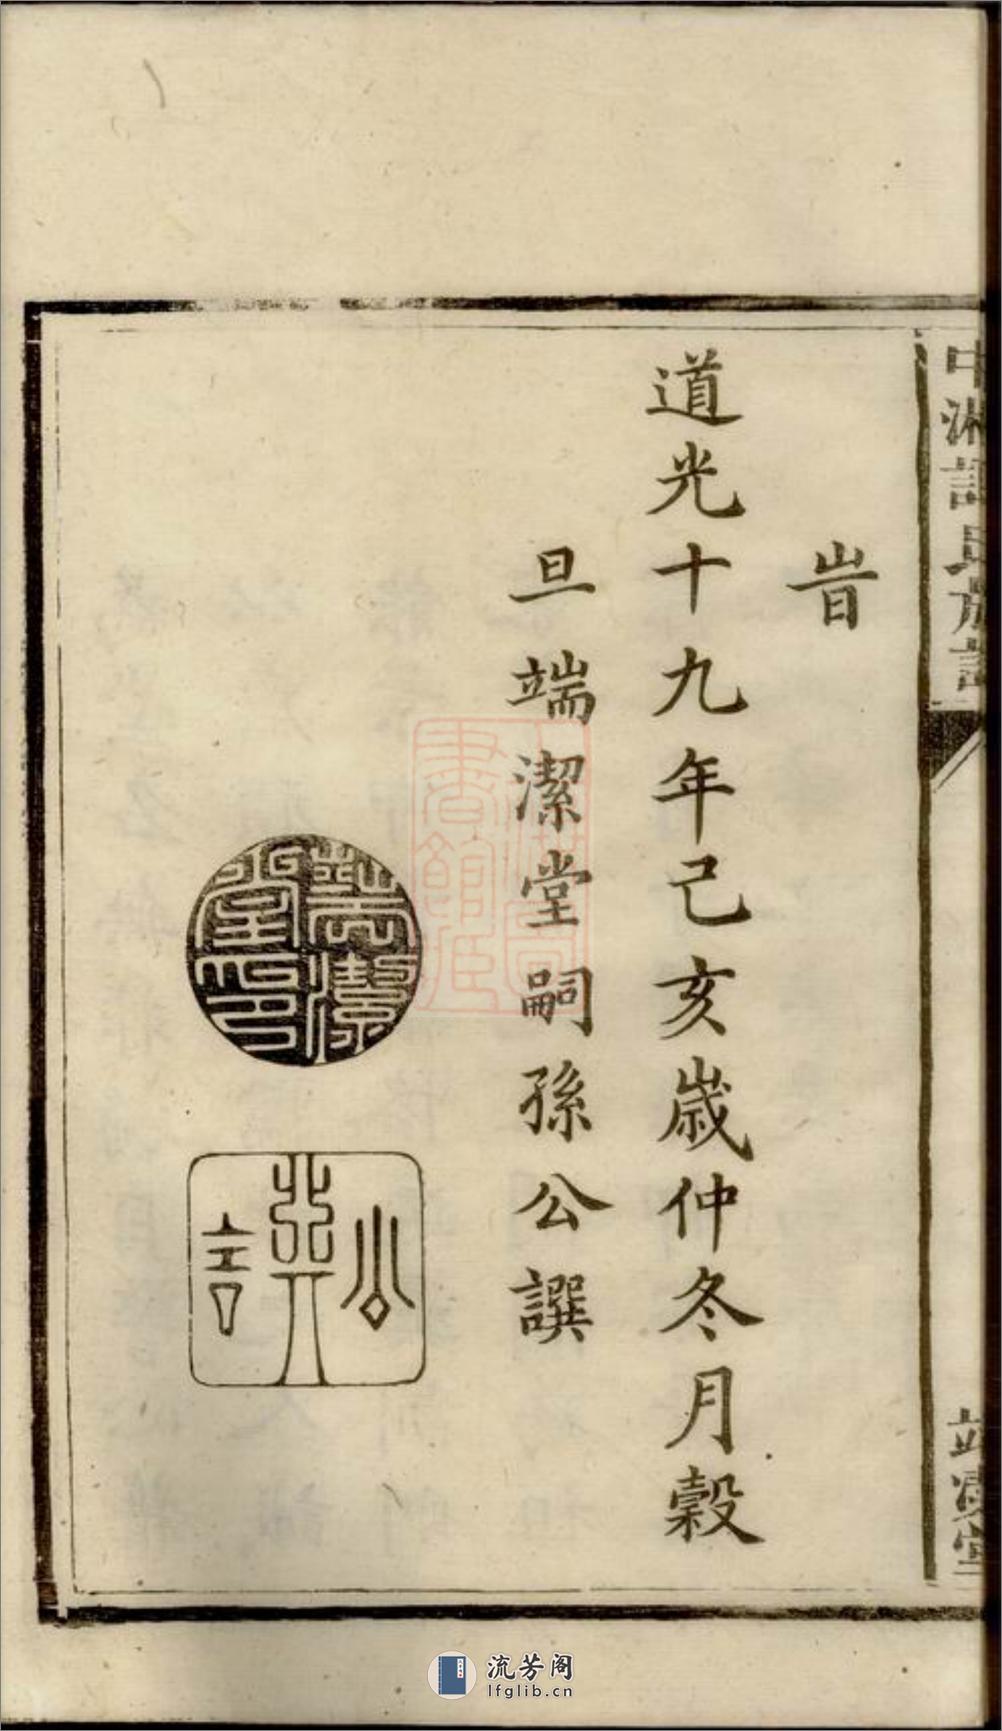 旹
道光十九年己亥歲仲冬月穀
旦端潔堂嗣孫公譔
端潔堂印
公譔
流芳阁
lfglib.cn